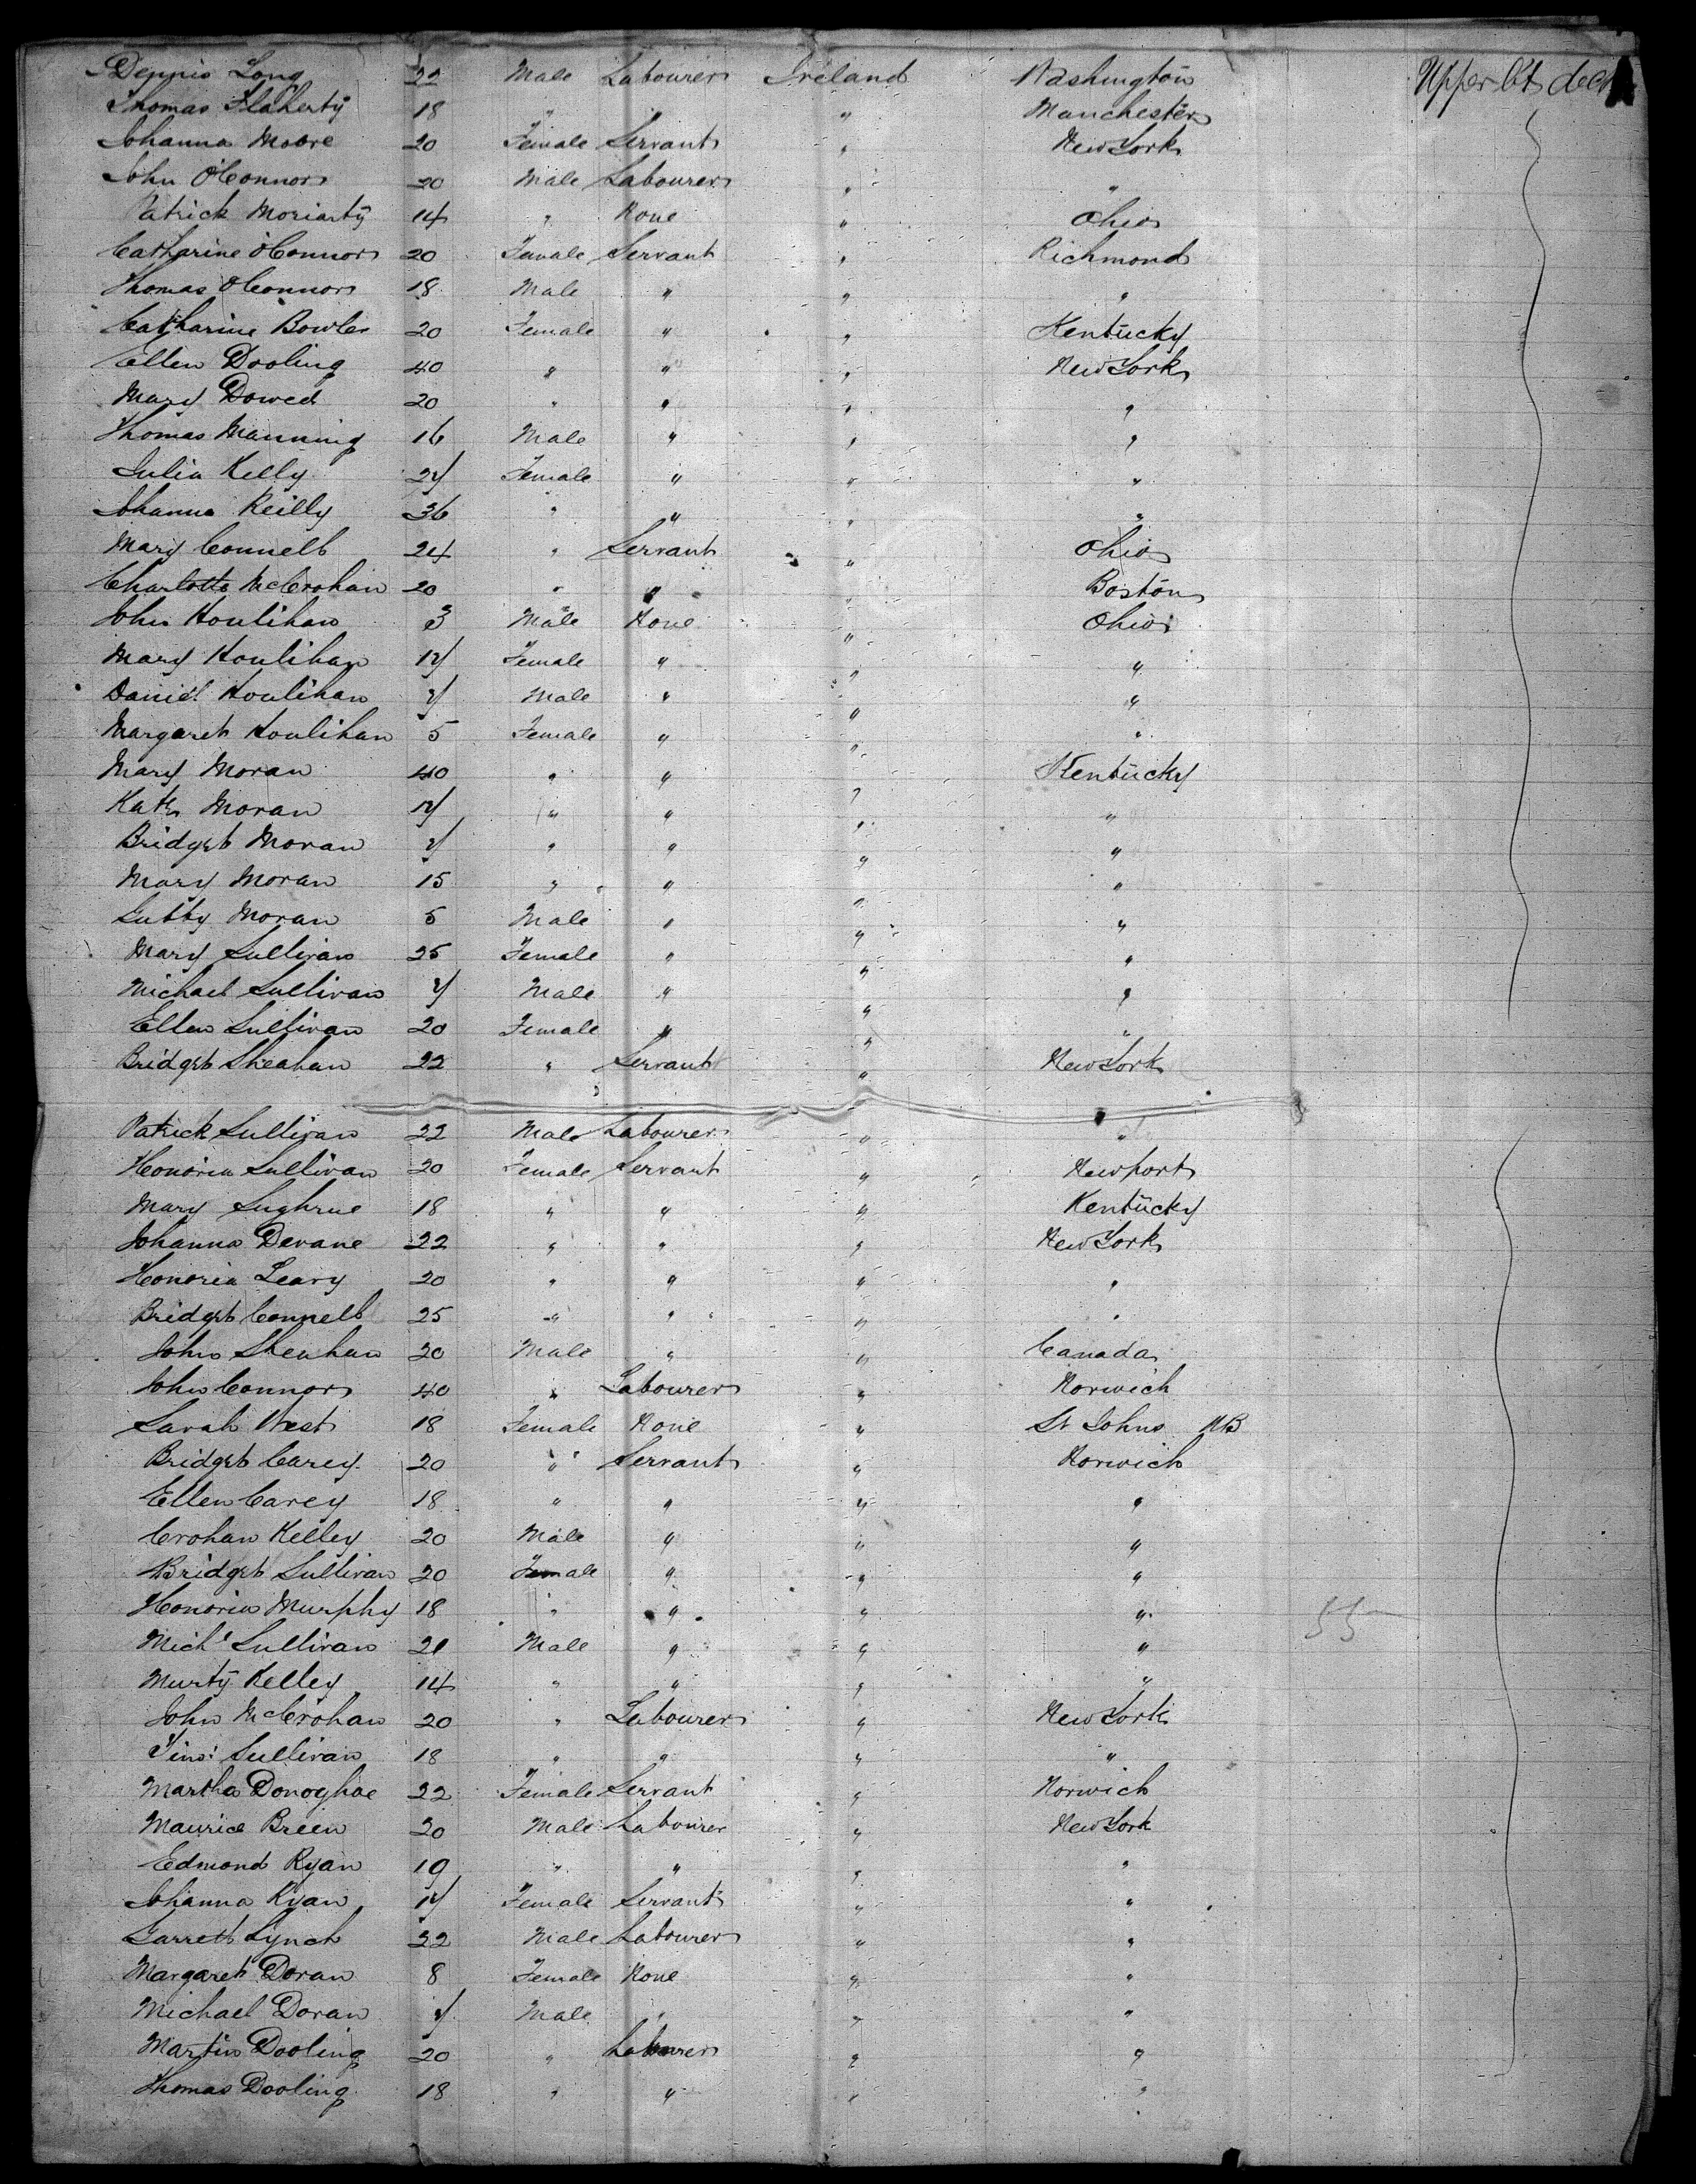 Dennis Long 22 Male Labourer Ireland Washington Upper bt deck
Thomas Flaherty 18 " " " Manchester
Johanna Moore 20 Female Servant " New York
John O'Connor 20 Male Labourer " "
Patrick Moriarty 14 " None " Ohio
Catharine O'Connor 20 Female Servant " Richmond
Thomas O'Connor 18 Male " " "
Catharine Bowler 20 Female " " Kentucky
Ellen Dooling 40 " " " New York
Mary Dowed 20 " " " "
Thomas Manning 16 Male " " "
Julia Kelly 27 Female " " "
Johanna Reilly 36 " " " "
Mary Connell 24 " Servant " Ohio
Charlotte McCrohan 20 " " " Boston
John Houlihan 3 Male None " Ohio
Mary Houlihan 17 Female " " "
Daniel Houlihan 7 Male " " "
Margaret Houlihan 5 Female " " "
Mary Moran 40 " " " Kentucky
Kate Moran 17 " " " "
Bridget Moran 7 " " " "
Mary Moran 15 " " " "
Moran 5 Male " " "
Mary Sullivan 25 Female " " "
Michael Sullivan 7 Male " " "
Ellen Sullivan 20 Female " " "
Bridget Sheahan 22 " Servant " New York
Patrick Sullivan 22 Male Labourer " "
Honoria Sullivan 20 Female Servant " Newport
Mary Sughrue 18 " " " Kentucky
Johanna Devane 22 " " " New York
Honoria Leary 20 " " " "
Bridget Connell 25 " " " "
John Sheahan 20 Male " " Canada
John Connor 40 " Labourer " Norwich
Sarah West 18 Female None " St Johns NB
Bridget Carey 20 " Servant " Norwich
Ellen Carey 18 " " " "
Crohan Kelley 20 Male " " "
Bridget Sullivan 20 Female " " "
Honoria Murphy 18 " " " " 55
Michl Sullivan 21 Male " " "
Murty Kelley 14 " " " "
John McCrohan 20 " Labourer " New York
Timo: Sullivan 18 " " " "
Martha Donoghoe 22 Female Servant " Norwich
Maurice Breen 20 Male Labourer " New York
Edmond Ryan 19 " " " "
Johanna Ryan 17 Female Servant " "
Garrett Lynch 22 Male Labourer " "
Margaret Doran 8 Female None " "
Michael Doran 7 Male " " "
Martin Dooling 20 " Labourer " "
Thomas Dooling 18 " " " "